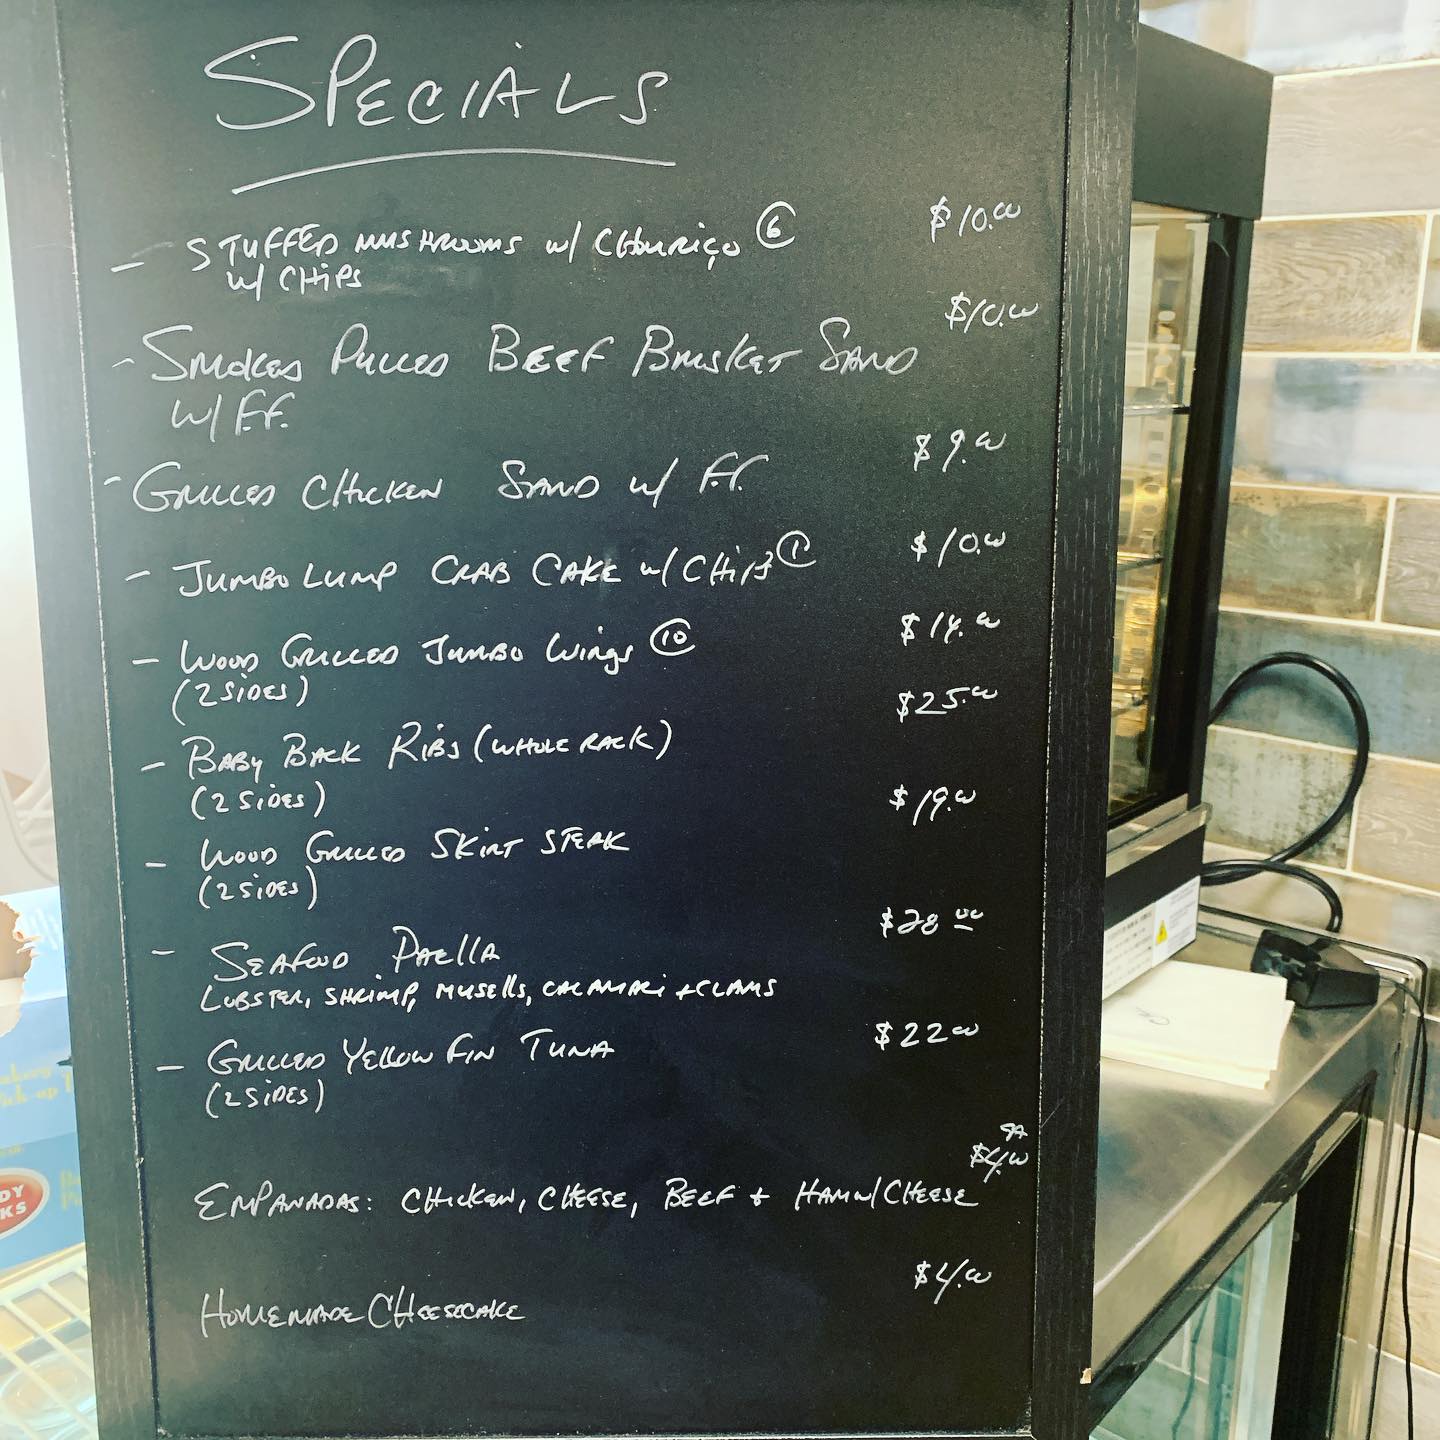 SPECIALS
- STUFFED MUSHROOMS w/ CHOURIÇO ⑥ $10.00
w/ CHIPS
- SMOKED PULLED BEEF BRISKET SAND $10.00
w/ F.F.
- GRILLED CHICKEN SAND w/ F.F. $9.00
- JUMBO LUMP CRAB CAKE w/ CHIPS ① $10.00
- WOOD GRILLED JUMBO WINGS ⑩ $14.00
(2 SIDES)
- BABY BACK RIBS (WHOLE RACK) $25.00
(2 SIDES)
- WOOD GRILLED SKIRT STEAK $19.00
(2 SIDES)
- SEAFOOD PAELLA $28.00
LOBSTER, SHRIMP, MUSELLS, CALAMARI + CLAMS
- GRILLED YELLOW FIN TUNA $22.00
(2 SIDES)
EMPANADAS: CHICKEN, CHEESE, BEEF + HAM w/ CHEESE $4.00
HOMEMADE CHEESECAKE $4.00